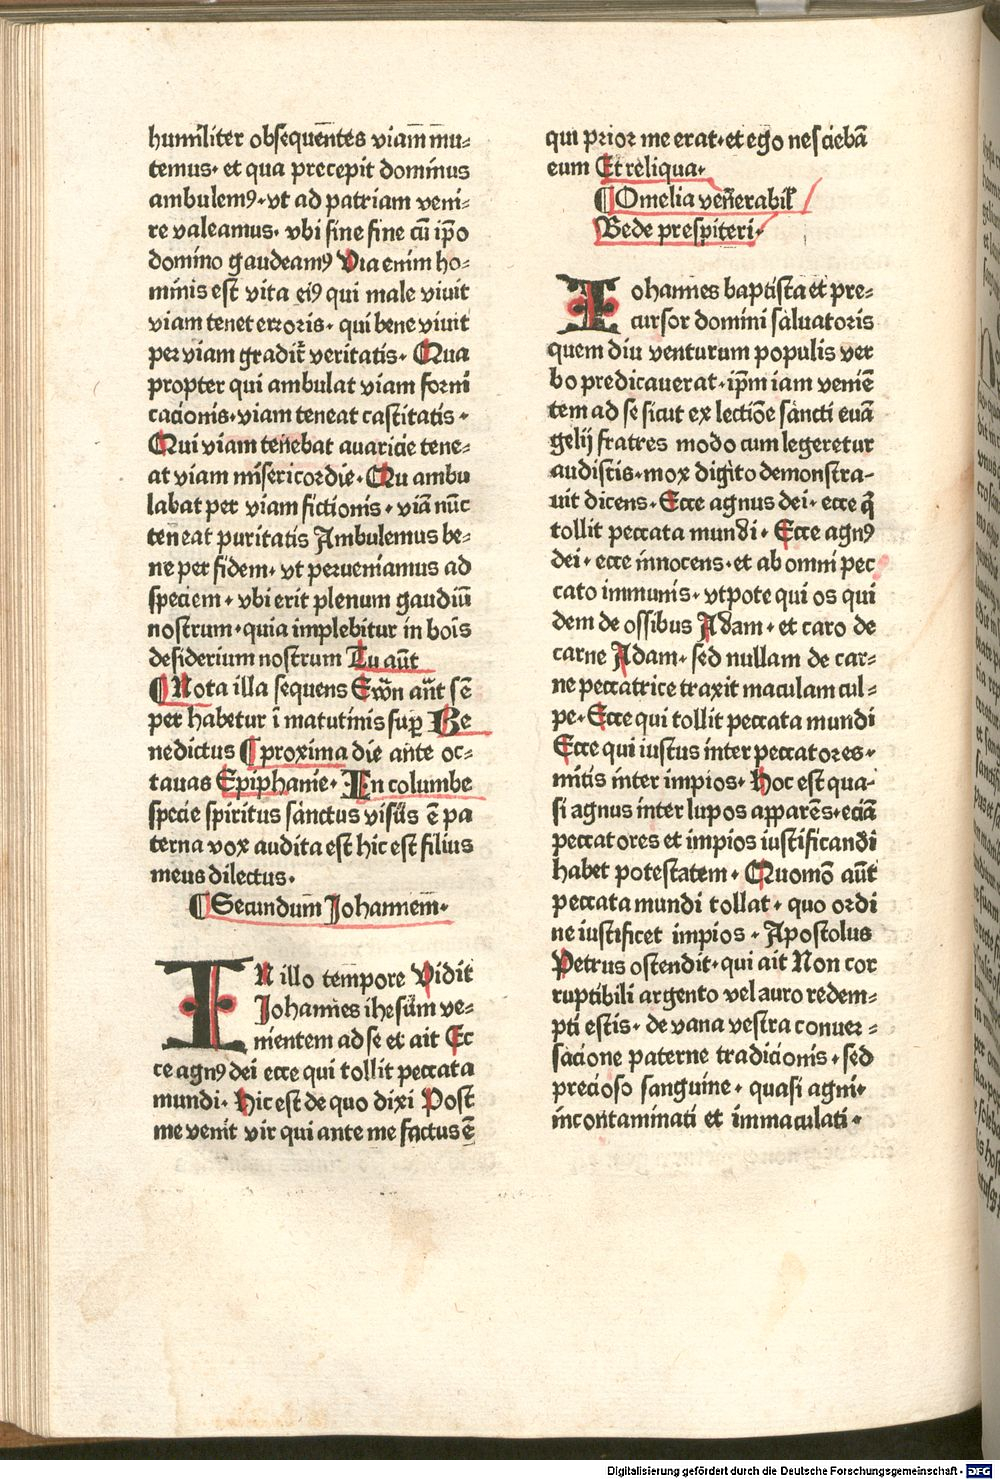 humiliter obsequētes viam̄ mu⸗
temus· et qua precepit dominus
ambulemꝰ·vt ad patriam veni⸗
re valeamus· vbi sine fine cū ip̄o
domino gaudeamꝰ Via enim ho⸗
minis est vita eiꝰ qui male viuit
viam tenet erroris· qui bene viuit
per viam gradit̄ veritatis· Qua
propter qui ambulat viam forni
cacionis·viam teneat castitatis·
Qui viam tenebat auaricie tene⸗
at viam misericordie·Qui ambu
labat per viam fictionis· viā nūc
teneat puritatis Ambulemus be⸗
ne per fidem· vt perueniamus ad
speciem· vbi erit plenum gaudiū
nostrum·quia implebitur in boīs
desiderium nostrum Tu aūt
¶Nota illa sequens Ewn̄ aūt sē
per habetur ī matutinis sup̄ Be
nedictus ¶proxima die ante oc⸗
tauas Epiphanie· In columbe
specie spiritus sanctus visus ē pa
terna vox audita est hic est filius
meus dilectus·
¶Secundum Johannem·
IN illo tempore Vidit
Johannes ihesum ve⸗
nientem ad se et ait Ec
ce agnꝰ dei ecce qui tollit peccata
mundi· Hic est de quo dixi Post
me venit vir qui ante me factus ē
qui prior me erat·et ego nesciebā
eum Et reliqua·
¶Omelia venerabil̄
Bede prespiteri·
Iohannes baptista et pre⸗
cursor domini saluatoris
quem diu venturum populis ver
bo predicauerat·ip̄m iam veniē
tem ad se sicut ex lectiōe sancti euā
gelij fratres modo cum legeretur
audistis·mox digito demonstra⸗
uit dicens·Ecce agnus dei·ecce q̄
tollit peccata mundi· Ecce agnꝰ
dei· ecce innocens·et ab omni pec
cato immunis· vtpote qui os qui
dem de ossibus Adam· et caro de
carne Adam· sed nullam de car⸗
ne peccatrice traxit maculam cul⸗
pe· Ecce qui tollit peccata mundi
Ecce qui iustus inter peccatores·
mitis inter impios· Hoc est qua⸗
si agnus inter lupos apparēs·eciā
peccatores et impios iustificandi
habet potestatem· Quomō aūt
peccata mundi tollat· quo ordi
ne iustificet impios· Apostolus
Petrus ostendit·qui ait Non cor
ruptibili argento vel auro redem⸗
pti estis· de vana vestra conuer⸗
sacione paterne tradicionis· sed
precioso sanguine· quasi agni·
incontaminati et immaculati·
Digitalisierung gefördert durch die Deutsche Forschungsgemeinschaft - DFG